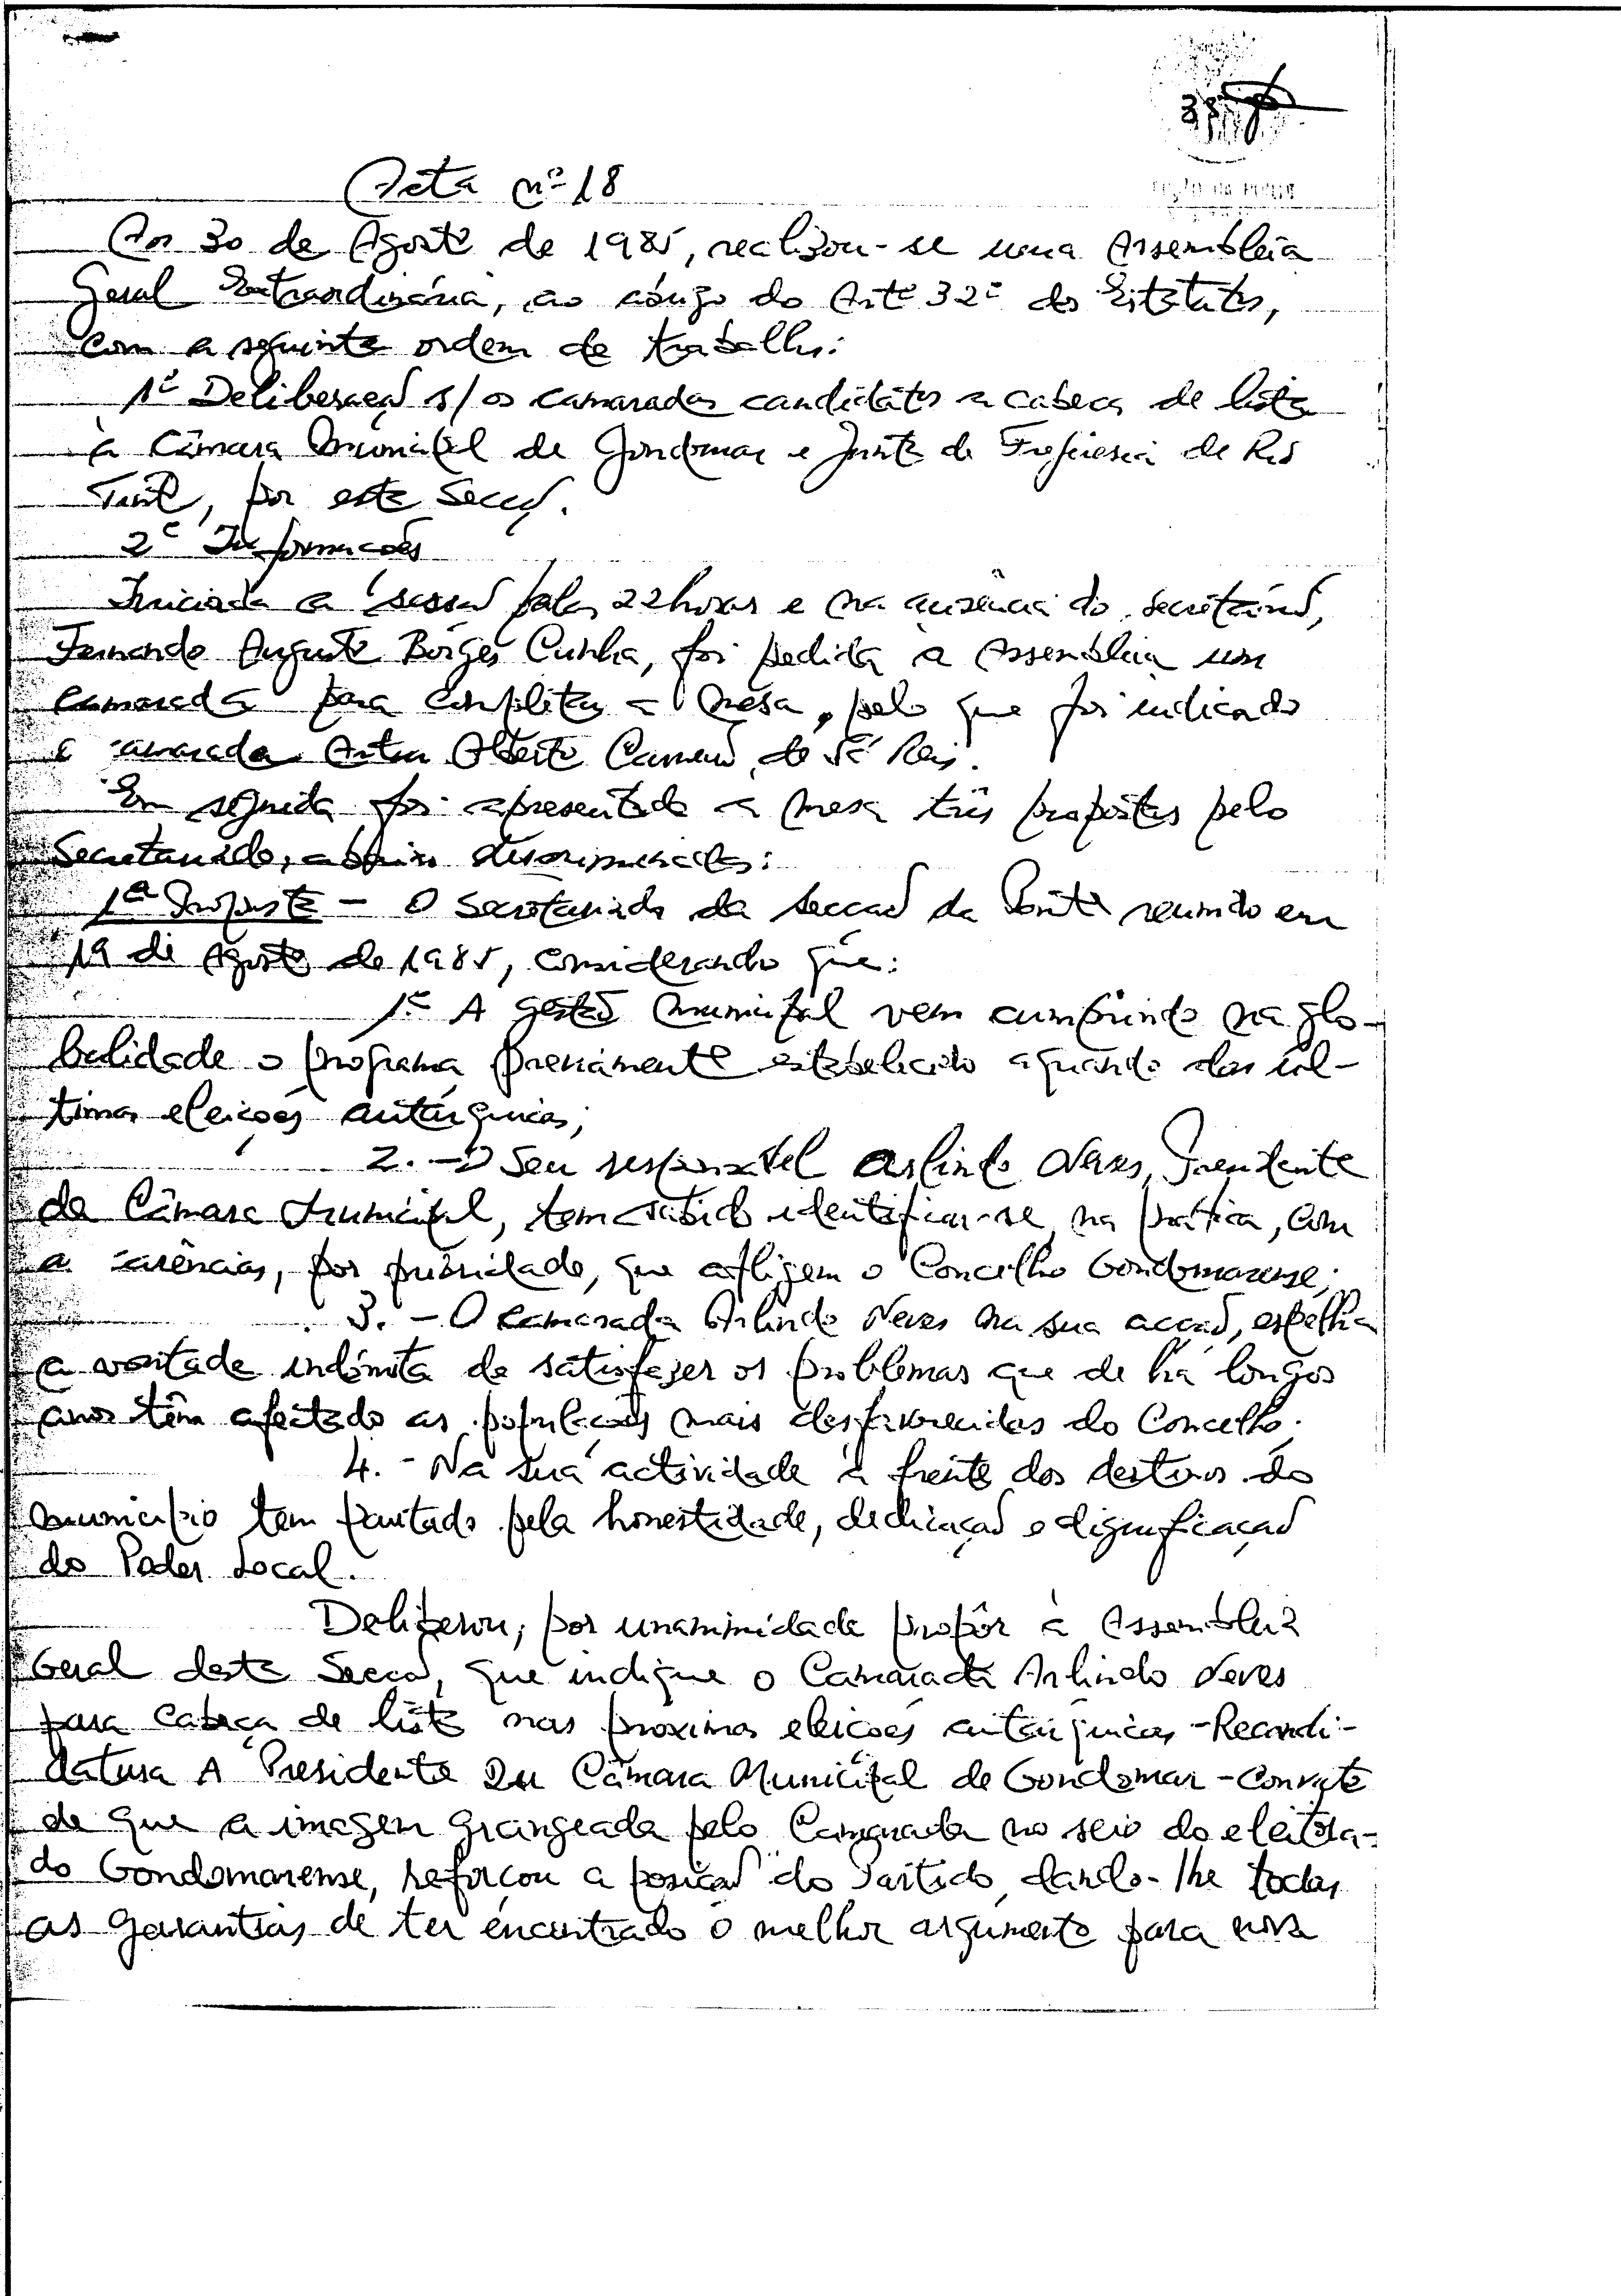 Acta nº 18
Aos 30 de Agosto de 1985, realizou-se uma Assembleia
Geral Extraordinária, ao abrigo do Artº 32º dos Estatutos,
com a seguinte ordem de trabalhos:
1º Deliberação s/ os camaradas candidatos a cabeça de lista
à Câmara Municipal de Gondomar e Junta de Freguesia de Rio
Tinto, por esta Secção.
2º Informações
Iniciada a sessão pelas 22 horas e na ausência do secretário,
Fernando Augusto Borges Cunha, foi pedida à Assembleia um
camarada para completar a Mesa, pelo que foi indicado
o camarada Artur Alberto Carneiro de Sá Reis.
Em seguida foi apresentado a mesa três propostas pelo
Secretariado, abaixo discriminadas:
1ª Proposta – O Secretariado da Secção da Ponte reunido em
19 de Agosto de 1985, considerando que:
1º A gestão municipal vem cumprindo na glo-
balidade o programa previamente estabelecido aquando das úl-
timas eleições autárquicas;
2. – O seu responsável Arlindo Neves, Presidente
da Câmara Municipal, tem sabido identificar-se, na prática, com
as carências, por prioridade, que afligem o Concelho Gondomarense;
3. – O camarada Arlindo Neves na sua acção, espelha
a vontade indómita de satisfazer os problemas que de há longos
anos têm afectado as populações mais desfavorecidas do Concelho.
4. – Na sua actividade à frente dos destinos do
Município tem pautado pela honestidade, dedicação e dignificação
do Poder Local.
Deliberou, por unanimidade propôr à Assembleia
Geral desta Secção, que indique o Camarada Arlindo Neves
para cabeça de lista nas proximas eleições autárquicas – Recandi-
datura A Presidente da Câmara Municipal de Gondomar – Convicto
de que a imagem grangeada pelo Camarada no seio do eleitora-
do Gondomarense, reforçou a posição do Partido, dando-lhe todas
as garantias de ter encontrado o melhor argumento para nova